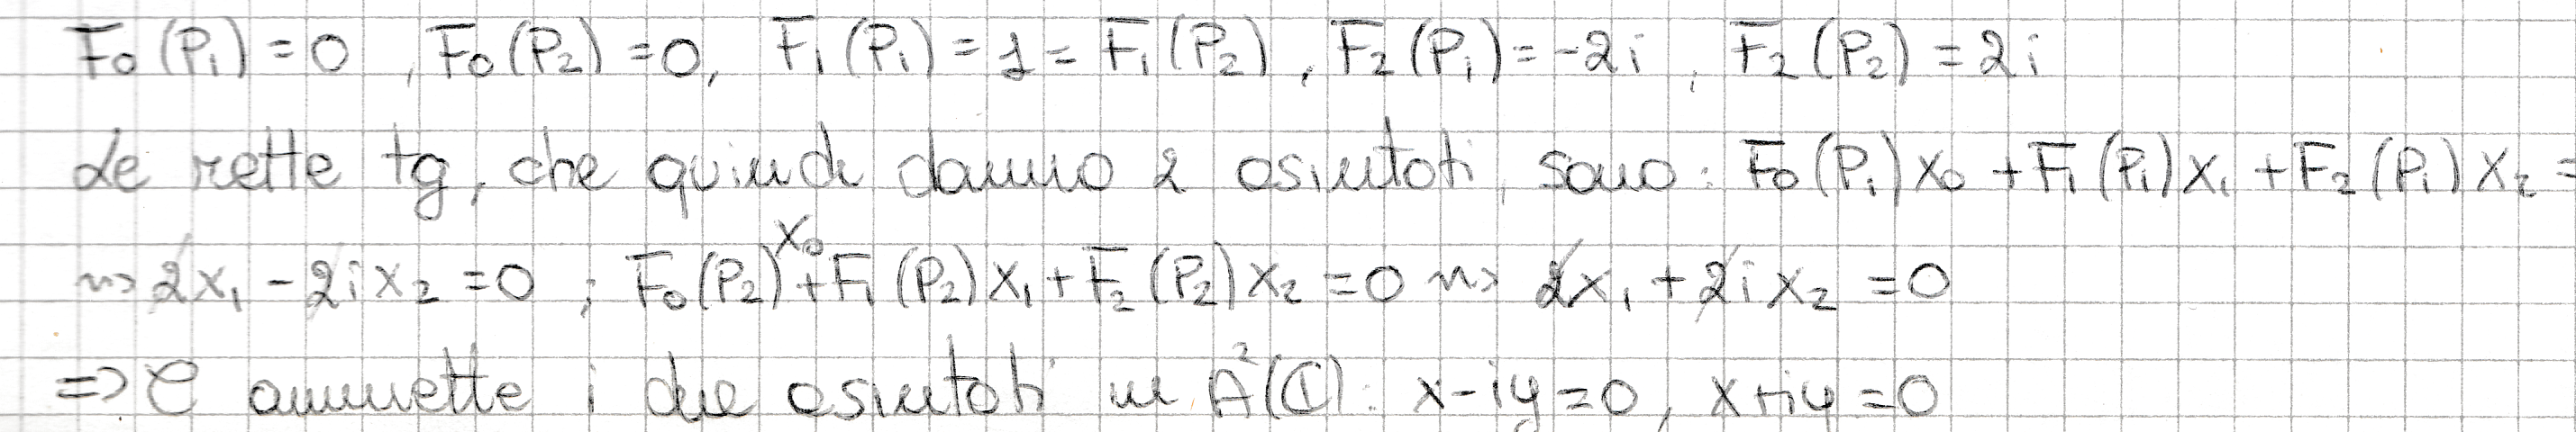 F₀(P₁) = 0, F₀(P₂) = 0, F₁(P₁) = 1 = F₁(P₂), F₂(P₁) = -2i, F₂(P₂) = 2i
Le rette tg, che quindi danno 2 asintoti, sono: F₀(P₁)X₀ + F₁(P₁)X₁ + F₂(P₁)X₂ =
⇝ 2X₁ - 2iX₂ = 0 ; F₀(P₂)X₀ + F₁(P₂)X₁ + F₂(P₂)X₂ = 0 ⇝ 2X₁ + 2iX₂ = 0
⇒ C ammette i due asintoti in A²(ℂ): x - iy = 0, x + iy = 0